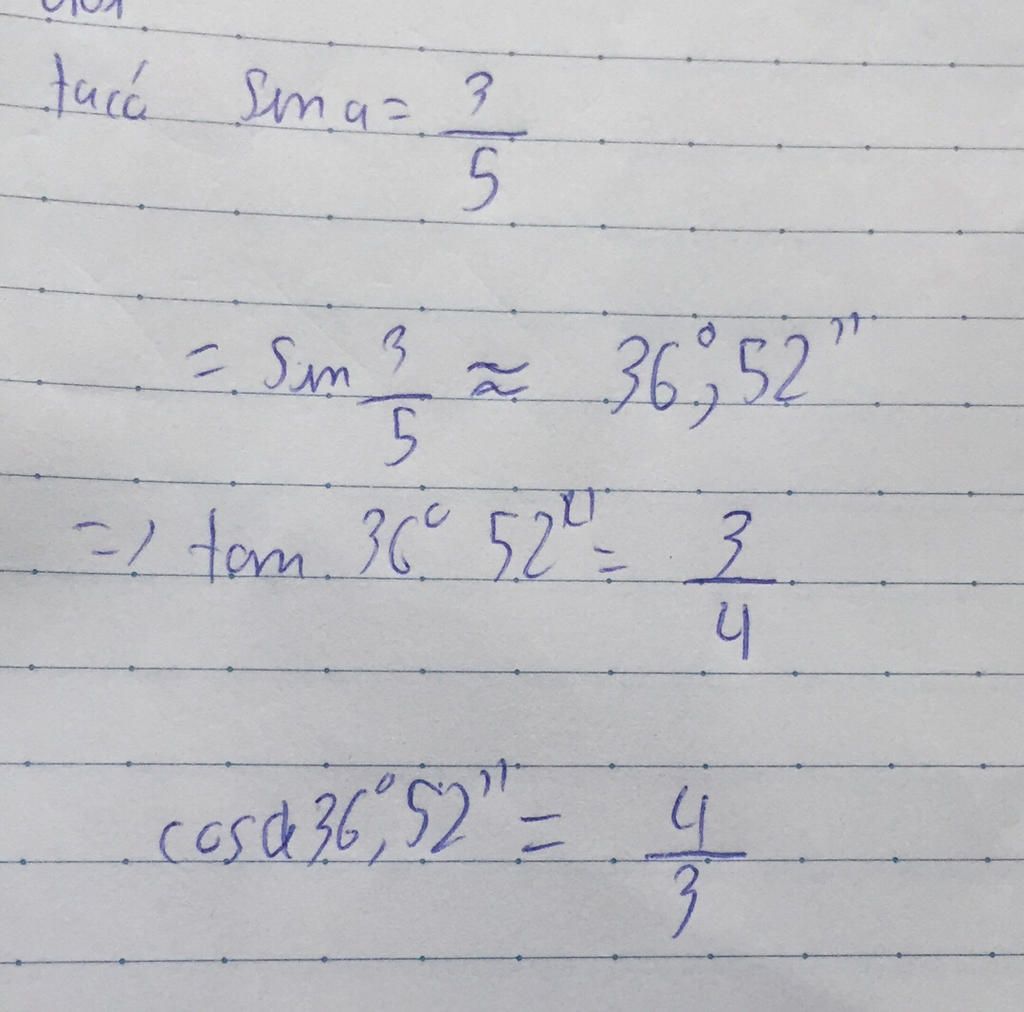 ta có sin a = 3/5
= sin 3/5 ≈ 36°,52"
=> tan 36° 52" = 3/4
cosα 36°,52" = 4/3